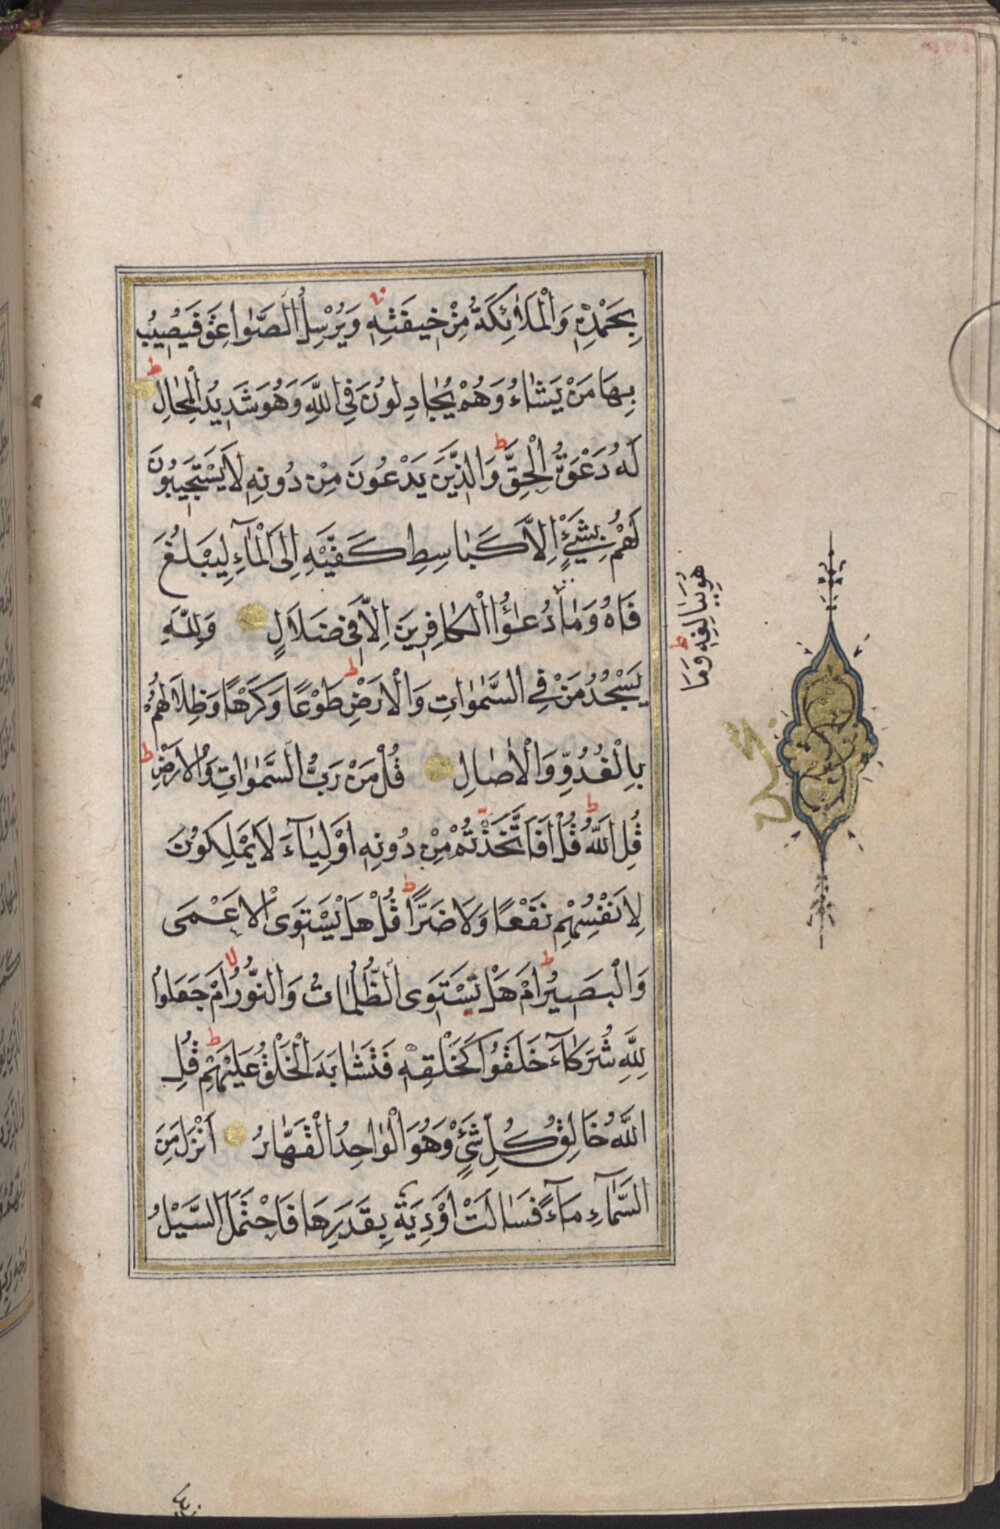 بِحَمْدِهِ وَالْمَلٰئِكَةُ مِنْ خِيفَتِهِ وَيُرْسِلُ الصَّوَاعِقَ فَيُصِيبُ
بِهَا مَنْ يَشَاءُ وَهُمْ يُجَادِلُونَ فِي اللَّهِ وَهُوَ شَدِيدُ الْمِحَالِ
لَهُ دَعْوَةُ الْحَقِّ وَالَّذِينَ يَدْعُونَ مِنْ دُونِهِ لَا يَسْتَجِيبُونَ
لَهُمْ بِشَيْءٍ اِلَّا كَبَاسِطِ كَفَّيْهِ اِلَى الْمَآءِ لِيَبْلُغَ
فَاهُ وَمَا دُعٰؤُا الْكَافِرِينَ اِلَّا فِي ضَلَالٍ وَلِلَّهِ
يَسْجُدُ مَنْ فِي السَّمٰوَاتِ وَالْاَرْضِ طَوْعًا وَكَرْهًا وَظِلَالُهُمْ
بِالْغُدُوِّ وَالْاٰصَالِ قُلْ مَنْ رَبُّ السَّمٰوَاتِ وَالْاَرْضِ
قُلِ اللَّهُ قُلْ اَفَاتَّخَذْتُمْ مِنْ دُونِهِ اَوْلِيَآءَ لَا يَمْلِكُونَ
لِاَنْفُسِهِمْ نَفْعًا وَلَا ضَرًّا قُلْ هَلْ يَسْتَوِى الْاَعْمَى
وَالْبَصِيرُ اَمْ هَلْ تَسْتَوِى الظُّلُمَاتُ وَالنُّورُ اَمْ جَعَلُوا
لِلَّهِ شُرَكَآءَ خَلَقُوا كَخَلْقِهِ فَتَشَابَهَ الْخَلْقُ عَلَيْهِمْ قُلِ
اللَّهُ خَالِقُ كُلِّ شَيْءٍ وَهُوَ الْوَاحِدُ الْقَهَّارُ اَنْزَلَ مِنَ
السَّمَآءِ مَآءً فَسَالَتْ اَوْدِيَةٌ بِقَدَرِهَا فَاحْتَمَلَ السَّيْلُ
هُوَ بِبَالِغِهِ وَمَا